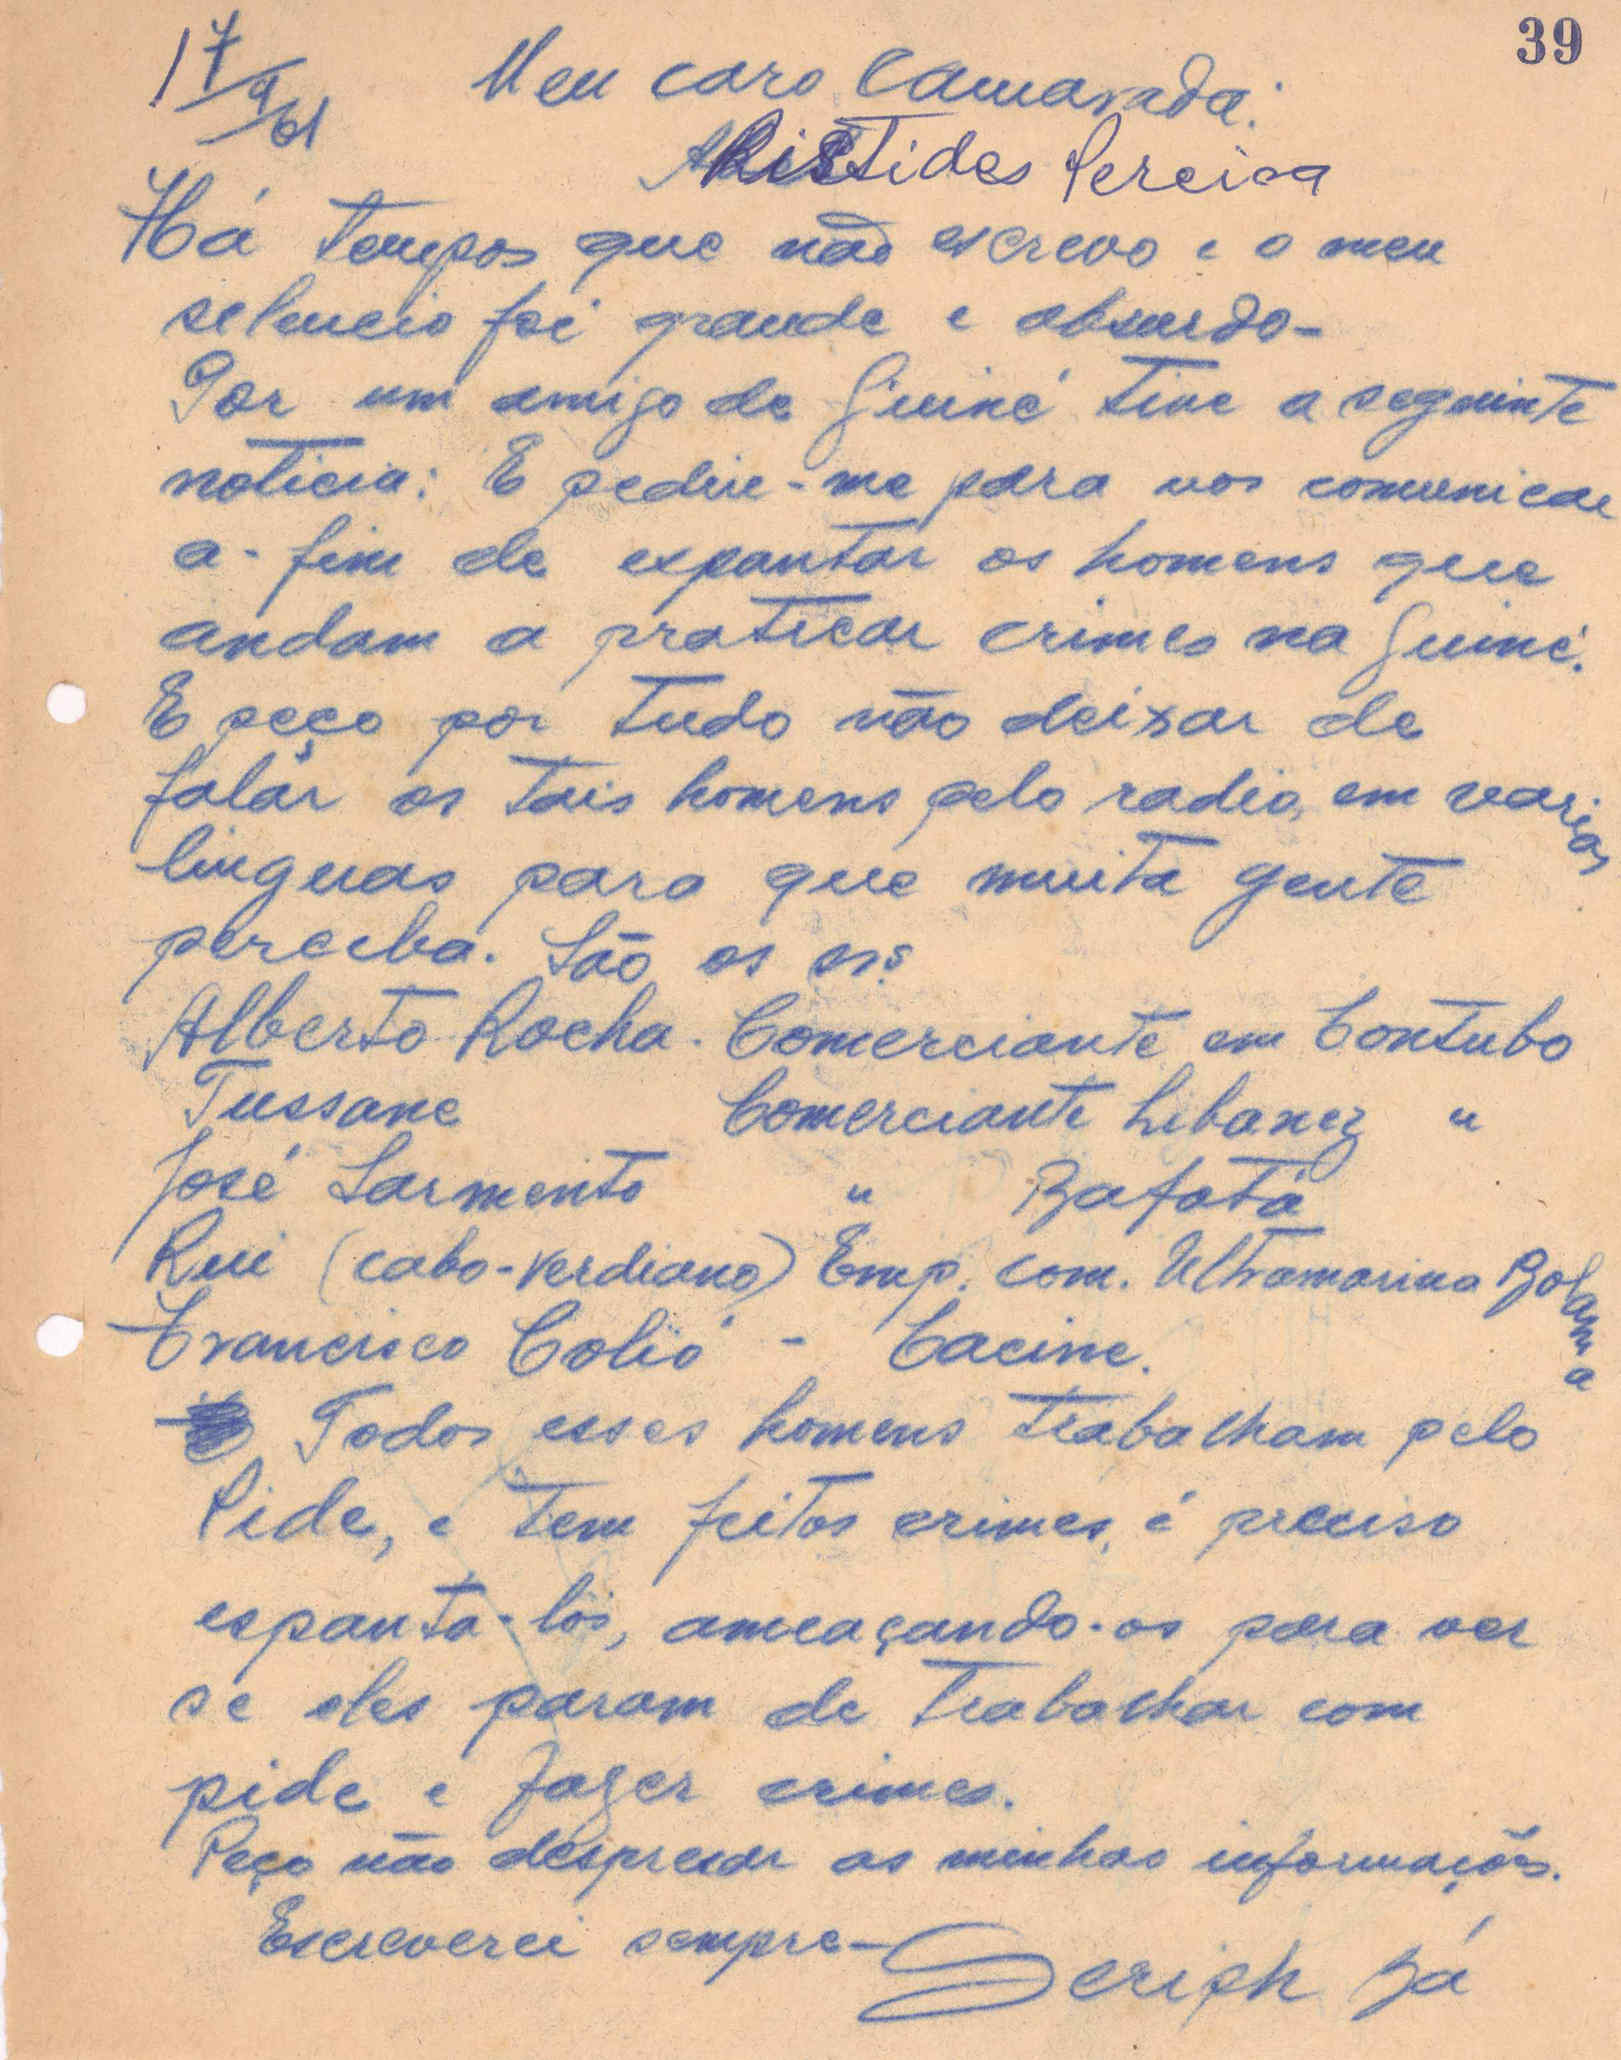 39
17/9/61
Meu caro Camarada:
Aristides Pereira
Há tempos que não escrevo e o meu
selencio foi grande e absurdo-
Por um amigo de Guiné tive a seguinte
noticia: E pediu-me para vos comunicar
a-fim de expantar os homens que
andam a praticar crimes na Guiné.
E peço por tudo não deixar de
falar os tais homens pelo radio, em varias
linguas para que muita gente
perceba. São os srs
Alberto Rocha. Comerciante em Contubo
Tussane Comerciante Libanez "
José Sarmento " Bafatá
Rui (cabo-verdiano) Emp. com. Ultramarina Bolama
Francisco Colió - Cacine.
Todos esses homens trabalham pelo
Pide, e tem feitos crimes, é preciso
espanta-los, ameaçando-os para ver
se eles param de trabalhar com
pide e fazer crimes.
Peço não despresar as minhas informações.
Escreverei sempre-
Serifh Bá